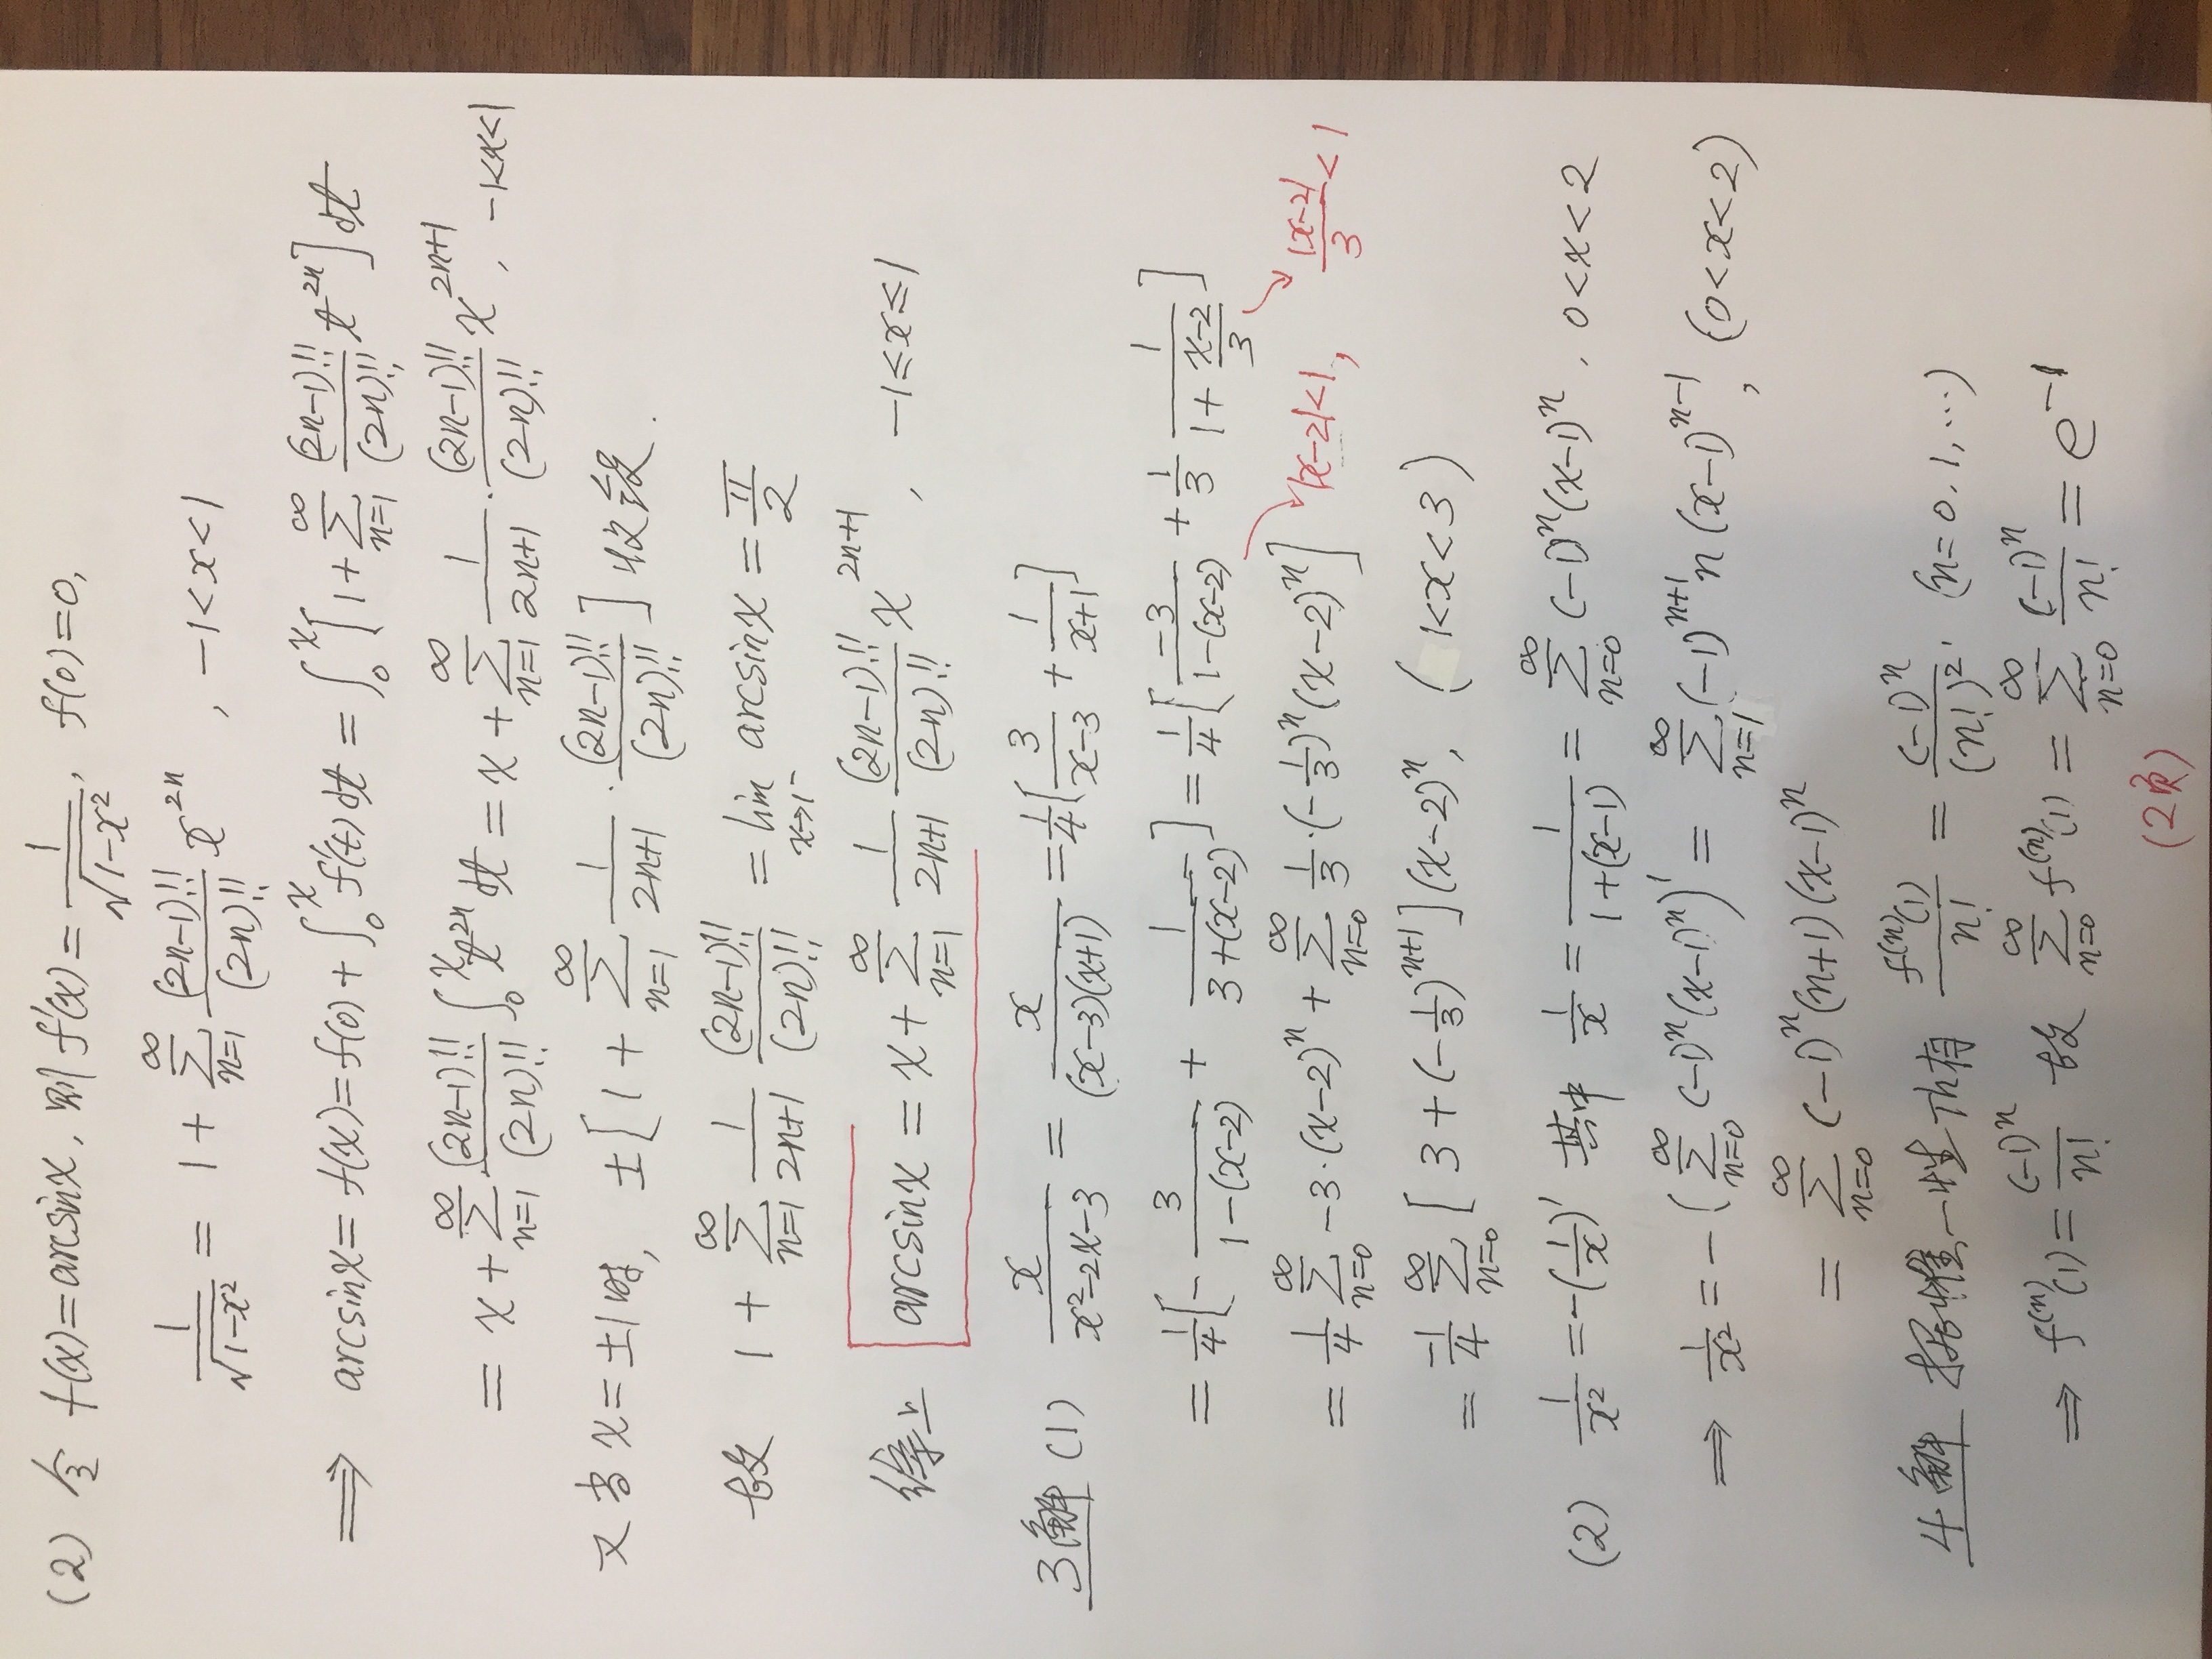 (2) 令 f(x)=arcsinx, 则 f'(x)=\frac{1}{\sqrt{1-x^2}}, f(0)=0,
\frac{1}{\sqrt{1-x^2}} = 1+\sum_{n=1}^{∞}\frac{(2n-1)!!}{(2n)!!}x^{2n}, -1<x<1
⟹ arcsinx=f(x)=f(0)+\int_0^x f'(t)dt=\int_0^x[1+\sum_{n=1}^{∞}\frac{(2n-1)!!}{(2n)!!}t^{2n}]dt
= x+\sum_{n=1}^{∞}\frac{(2n-1)!!}{(2n)!!}\int_0^x t^{2n}dt=x+\sum_{n=1}^{∞}\frac{1}{2n+1}·\frac{(2n-1)!!}{(2n)!!}x^{2n+1}, -1<x<1
又当x=±1时, ±[1+\sum_{n=1}^{∞}\frac{1}{2n+1}·\frac{(2n-1)!!}{(2n)!!}]收敛.
故 1+\sum_{n=1}^{∞}\frac{1}{2n+1}\frac{(2n-1)!!}{(2n)!!}=\lim_{x→1^-}arcsinx=\frac{π}{2}
综上 arcsinx=x+\sum_{n=1}^{∞}\frac{1}{2n+1}\frac{(2n-1)!!}{(2n)!!}x^{2n+1}, -1≤x≤1
3解 (1) \frac{x}{x^2-2x-3}=\frac{x}{(x-3)(x+1)}=\frac{1}{4}[\frac{3}{x-3}+\frac{1}{x+1}]
=\frac{1}{4}[-\frac{3}{1-(x-2)}+\frac{1}{3+(x-2)}]=\frac{1}{4}[\frac{-3}{1-(x-2)}+\frac{1}{3}\frac{1}{1+\frac{x-2}{3}}]
=\frac{1}{4}\sum_{n=0}^{∞}-3·(x-2)^n+\sum_{n=0}^{∞}\frac{1}{3}·(-\frac{1}{3})^n(x-2)^n] |x-2|<1, \frac{|x-2|}{3}<1
=\frac{-1}{4}\sum_{n=0}^{∞}[3+(-\frac{1}{3})^{n+1}](x-2)^n, (1<x<3)
(2) \frac{1}{x^2}=-(\frac{1}{x})' 其中 \frac{1}{x}=\frac{1}{1+(x-1)}=\sum_{n=0}^{∞}(-1)^n(x-1)^n, 0<x<2
⟹ \frac{1}{x^2}=-(\sum_{n=0}^{∞}(-1)^n(x-1)^n)'=\sum_{n=1}^{∞}(-1)^{n+1}n(x-1)^{n-1}, (0<x<2)
=\sum_{n=0}^{∞}(-1)^n(n+1)(x-1)^n
4解 据惟一性 仍有 \frac{f^{(n)}(1)}{n!}=\frac{(-1)^n}{(n!)^2}, (n=0,1,…)
⟹ f^{(n)}(1)=\frac{(-1)^n}{n!} 故 \sum_{n=0}^{∞}f^{(n)}(1)=\sum_{n=0}^{∞}\frac{(-1)^n}{n!}=e^{-1}
(2页)